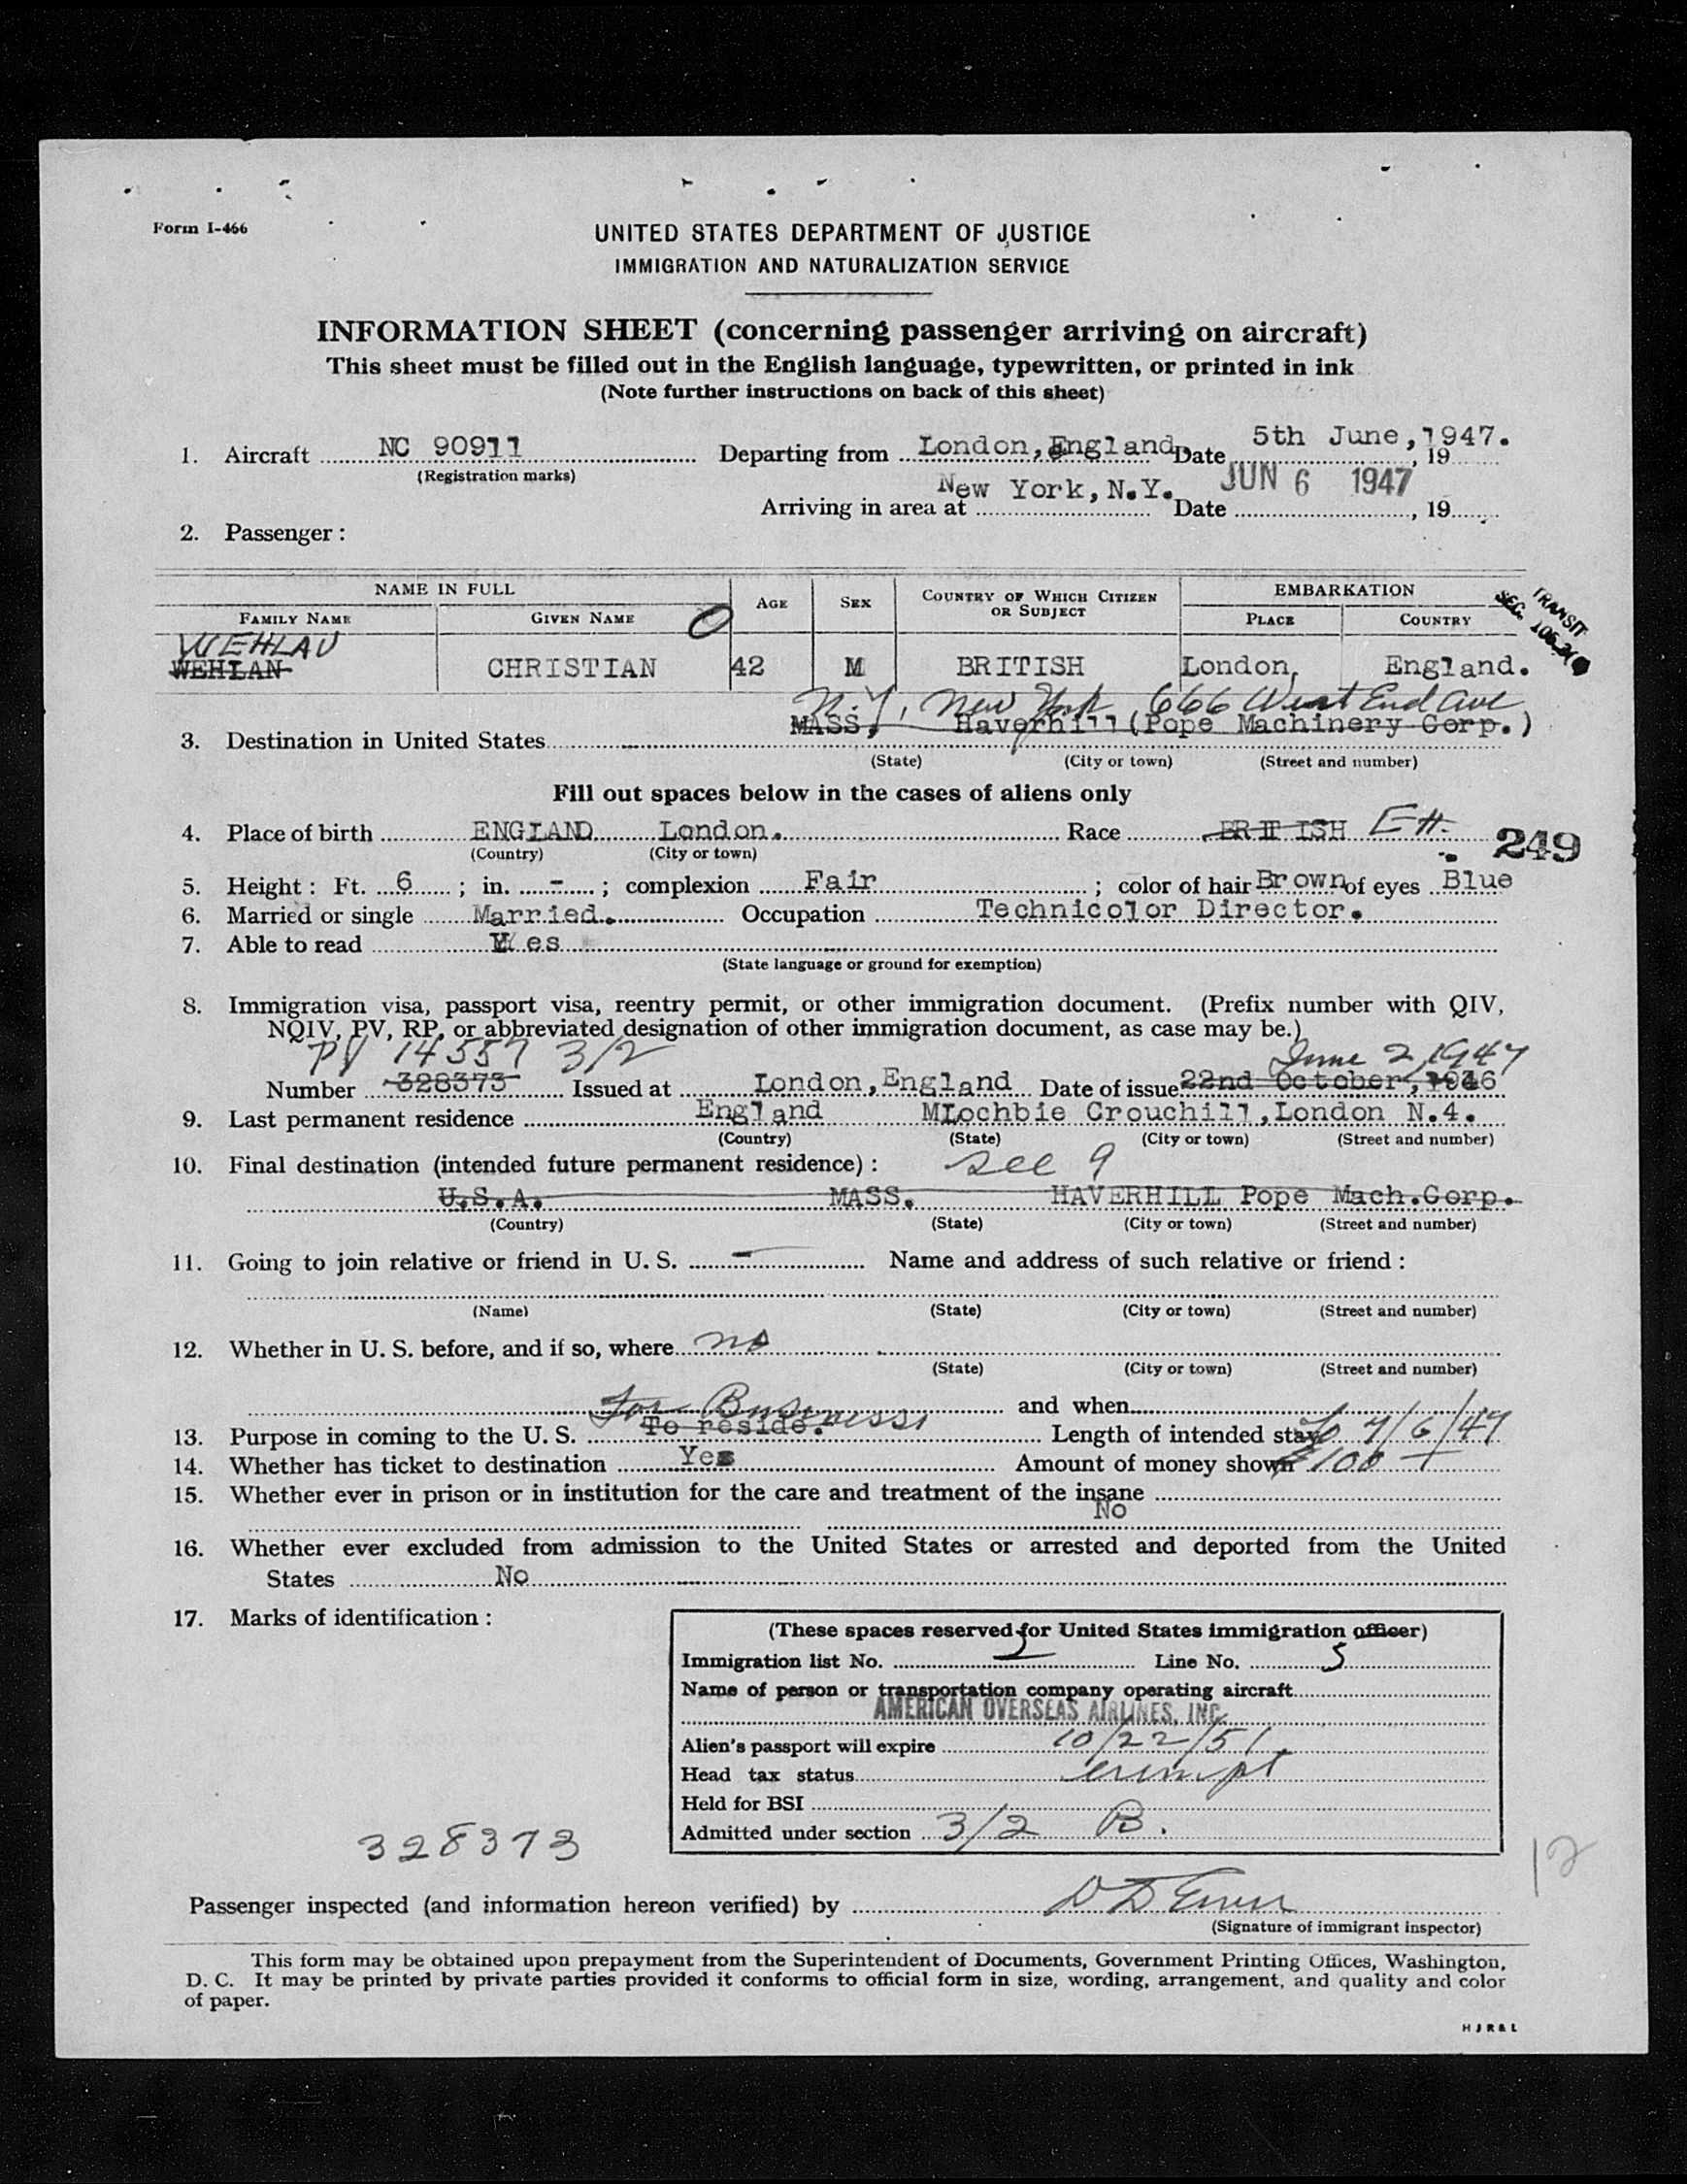 Form I-466
UNITED STATES DEPARTMENT OF JUSTICE
IMMIGRATION AND NATURALIZATION SERVICE
INFORMATION SHEET (concerning passenger arriving on aircraft)
This sheet must be filled out in the English language, typewritten, or printed in ink
(Note further instructions on back of this sheet)
1. Aircraft NC 90911 Departing from London, England. Date 5th June, 1947. , 19
(Registration marks)
Arriving in area at New York, N.Y. Date JUN 6 1947 , 19
2. Passenger :
NAME IN FULL AGE SEX COUNTRY OF WHICH CITIZEN OR SUBJECT EMBARKATION
FAMILY NAME GIVEN NAME PLACE COUNTRY
TRANSIT
SEC.
WEHLAU
WEHLAN CHRISTIAN 42 M BRITISH London, England.
N.Y, New York 666 West End Ave
3. Destination in United States MASS, Haverhill (Pope Machinery Corp.)
(State) (City or town) (Street and number)
Fill out spaces below in the cases of aliens only
4. Place of birth ENGLAND London. Race BRITISH
(Country) (City or town)
249
5. Height : Ft. 6 ; in. - ; complexion Fair ; color of hair Brown of eyes Blue
6. Married or single Married. Occupation Technicolor Director.
7. Able to read Yes
(State language or ground for exemption)
8. Immigration visa, passport visa, reentry permit, or other immigration document. (Prefix number with QIV,
NQIV, PV, RP, or abbreviated designation of other immigration document, as case may be.)
PV 14557 3/2 June 2, 1947
Number 328373 Issued at London, England Date of issue 22nd October, 1946
9. Last permanent residence England MLochbie Crouchill, London N.4.
(Country) (State) (City or town) (Street and number)
10. Final destination (intended future permanent residence) : see 9
U.S.A. MASS. HAVERHILL Pope Mach. Corp.
(Country) (State) (City or town) (Street and number)
11. Going to join relative or friend in U. S. - Name and address of such relative or friend :
(Name) (State) (City or town) (Street and number)
12. Whether in U. S. before, and if so, where no
(State) (City or town) (Street and number)
and when
For Business
13. Purpose in coming to the U. S. To reside. Length of intended stay to 7/6/47
14. Whether has ticket to destination Yes Amount of money shown 100
15. Whether ever in prison or in institution for the care and treatment of the insane
No
16. Whether ever excluded from admission to the United States or arrested and deported from the United
States No
17. Marks of identification :
(These spaces reserved for United States immigration officer)
Immigration list No. Line No. 5
Name of person or transportation company operating aircraft
AMERICAN OVERSEAS AIRLINES, INC.
Alien's passport will expire 10/22/51
Head tax status exempt
Held for BSI
Admitted under section 3/2 B.
328373
12
Passenger inspected (and information hereon verified) by
(Signature of immigrant inspector)
This form may be obtained upon prepayment from the Superintendent of Documents, Government Printing Offices, Washington,
D. C. It may be printed by private parties provided it conforms to official form in size, wording, arrangement, and quality and color
of paper.
H J R & L